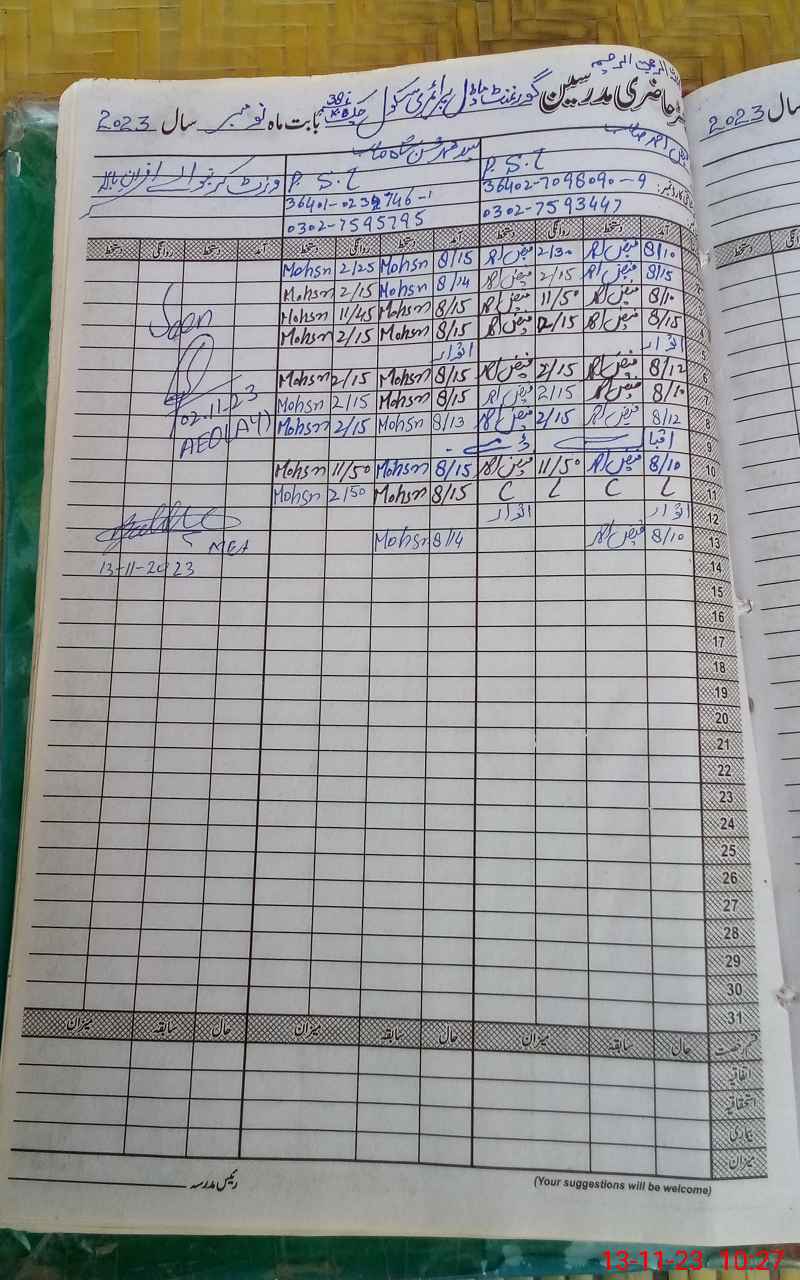 رجسٹر حاضری مدرسین گورنمنٹ ماڈل پرائمری سکول چک 38 K.B بابت ماہ نومبر سال 2023
2023 سال
P. S. T P. S. T
36402-7098090-9
0302-7593447 0302-7595795
آمد دستخط روانگی دستخط آمد دستخط روانگی دستخط آمد دستخط روانگی دستخط
8/10 فیض 2/30 فیض 8/15 Mohsn 2/25 Mohsn
8/15 فیض 2/15 فیض 8/14 Mohsn 2/15 Mohsn
8/10 فیض 11/50 فیض 8/15 Mohsn 11/45 Mohsn Seen
4 8/15 فیض 2/15 فیض 8/15 Mohsn 2/15 Mohsn
5 اتوار اتوار
6 8/12 فیض 2/15 فیض 8/15 Mohsn 2/15 Mohsn
7 8/10 فیض 2/15 فیض 8/15 Mohsn 2/15 Mohsn 02.11.23
8 8/12 فیض 2/15 فیض 8/13 Mohsn 2/15 Mohsn
9 اقبال ڈے
10 8/10 فیض 11/50 فیض 8/15 Mohsn 11/50 Mohsn
11 L C L C 8/15 Mohsn 2/50 Mohsn
12 اتوار اتوار
13 8/10 فیض 8/14 Mohsn MEA
14 13-11-2023
15
16
17
18
19
20
21
22
23
24
25
26
27
28
29
30
31
قسم رخصت حال سابقہ میزان حال سابقہ میزان حال سابقہ میزان
اتفاقیہ
استحقاقیہ
بیماری
میزان
رئیس مدرسہ
(Your suggestions will be welcome)
13-11-23 10:27